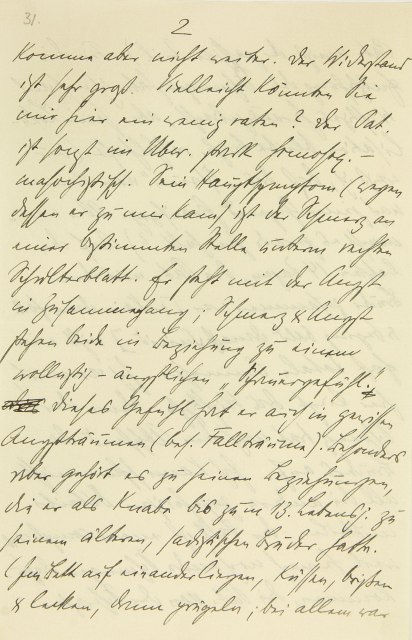 31.
2
komme aber nicht weiter. Der Widerstand
ist sehr groß. Vielleicht könnten Sie
mir hier ein wenig raten? Der Pat.
ist sonst im Über. stark homosex. –
masochistisch. Sein Hauptsymptom (wegen
dessen er zu mir kam) ist der Schmerz an
einer bestimmten Stelle unterm rechten
Schulterblatt. Er steht mit der Angst
in Zusammenhang; Schmerz & Angst
stehen beide in Beziehung zu einem
wollustig-ängstlichen „Schauergefühl".
Dieses Gefühl hat er auch in gewissen
Angstträumen (bes. Fallträume). Besonders
aber gehört es zu seinen Beziehungen,
die er als Knabe bis zum 13. Lebensj. zu
seinem älteren, sadistischen Bruder hatte.
(Im Bett aufeinanderliegen, Küssen, beißen
& lecken, dann prügeln; bei allem war